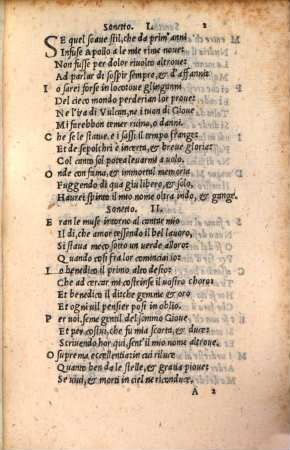 Sonetto. I. 2
SE quel soaue stil, che da prim'anni
Infuse Apollo a le mie rime noue;
Non fusse per dolor riuolto altroue;
Ad parlar di sospir sempre, & d'affanni:
I o sarei forse in loco, oue gl'inganni
Del cieco mondo perderian lor proue:
Ne l'ira di Vulcan, ne i tuon di Gioue
Mi farebbon temer ruina, o danni.
C he se le statue, e i sassi il tempo frange;
Et de sepolchri è incerta, & breue gloria:
Col canto sol potea leuarmi a uolo,
O nde con fama, & immortal memoria
Fuggendo di qua giu libero, & solo,
Haurei spinto il mio nome oltra indo, & gange.
Sonetto. II.
E ran le muse intorno al cantar mio
Il di, che amor tessendo il bel lauoro,
Si staua meco sotto un uerde alloro;
Quando così fra lor cominciai io:
I o benedico il primo alto desio;
Che ad cercar mi costrinse il uostro choro:
Et benedico il dir, che gemme & oro
Et ogni uil pensier post'in oblio.
P er uoi, seme gentil del sommo Gioue
Et per costui, che fu mia scorta, & duce:
Scriuendo hor qui, sent'il mio nome altroue.
O suprema eccellentia: in cui riluce
Quanto ben da le stelle, & gratia pioue:
Se uiui, & morti in ciel ne riconduce.
A 2